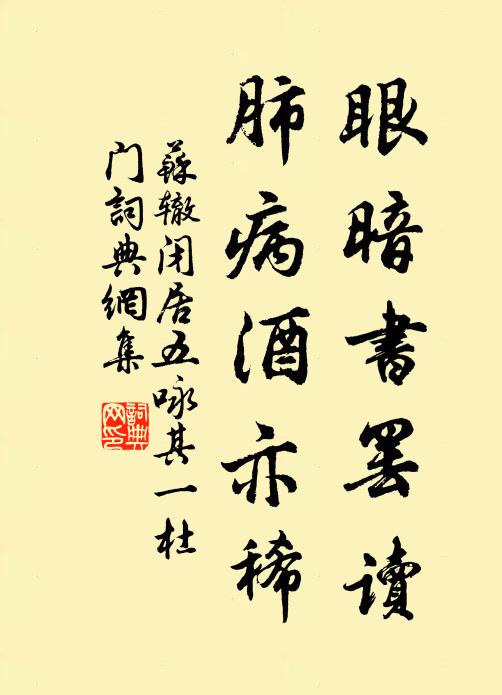 眼暗書罷讀
肺病酒亦稀
蘇辙闭居五咏其一杜
门詞典網集
詞典
网印